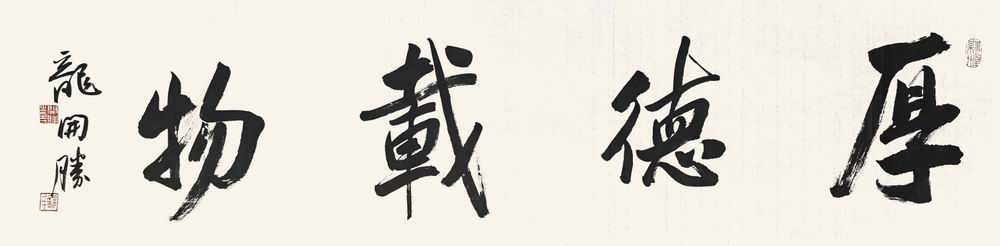 厚德載物
龍開勝